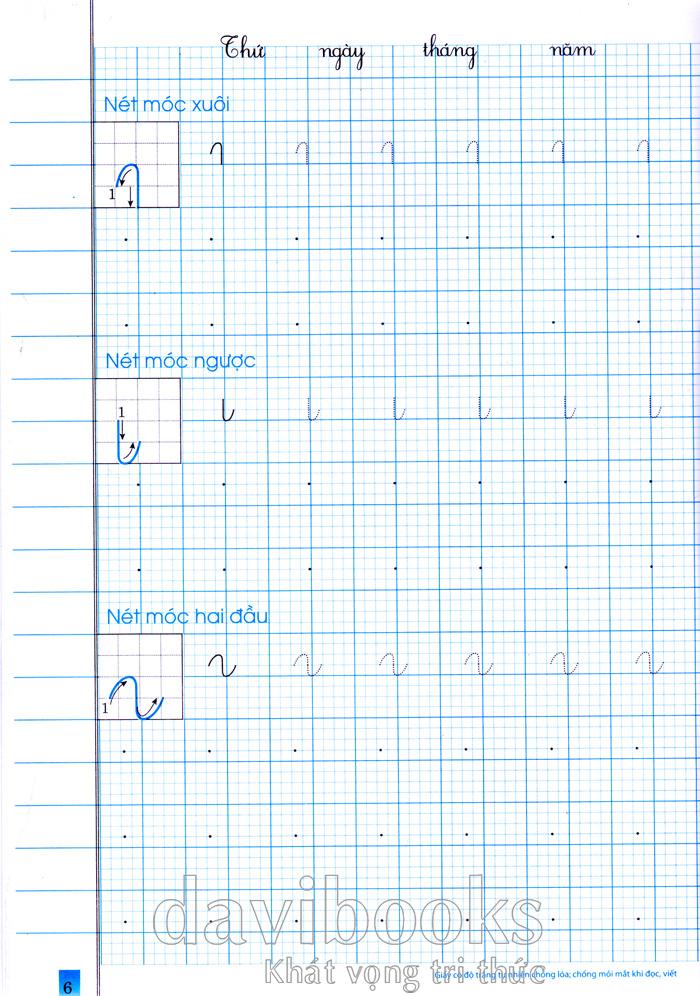 Thứ ngày tháng năm
Nét móc xuôi
1
Nét móc ngược
1
Nét móc hai đầu
1
davibooks
Khát vọng tri thức
Giấy có độ trắng tự nhiên, chống lóa; chống mỏi mắt khi đọc, viết
6